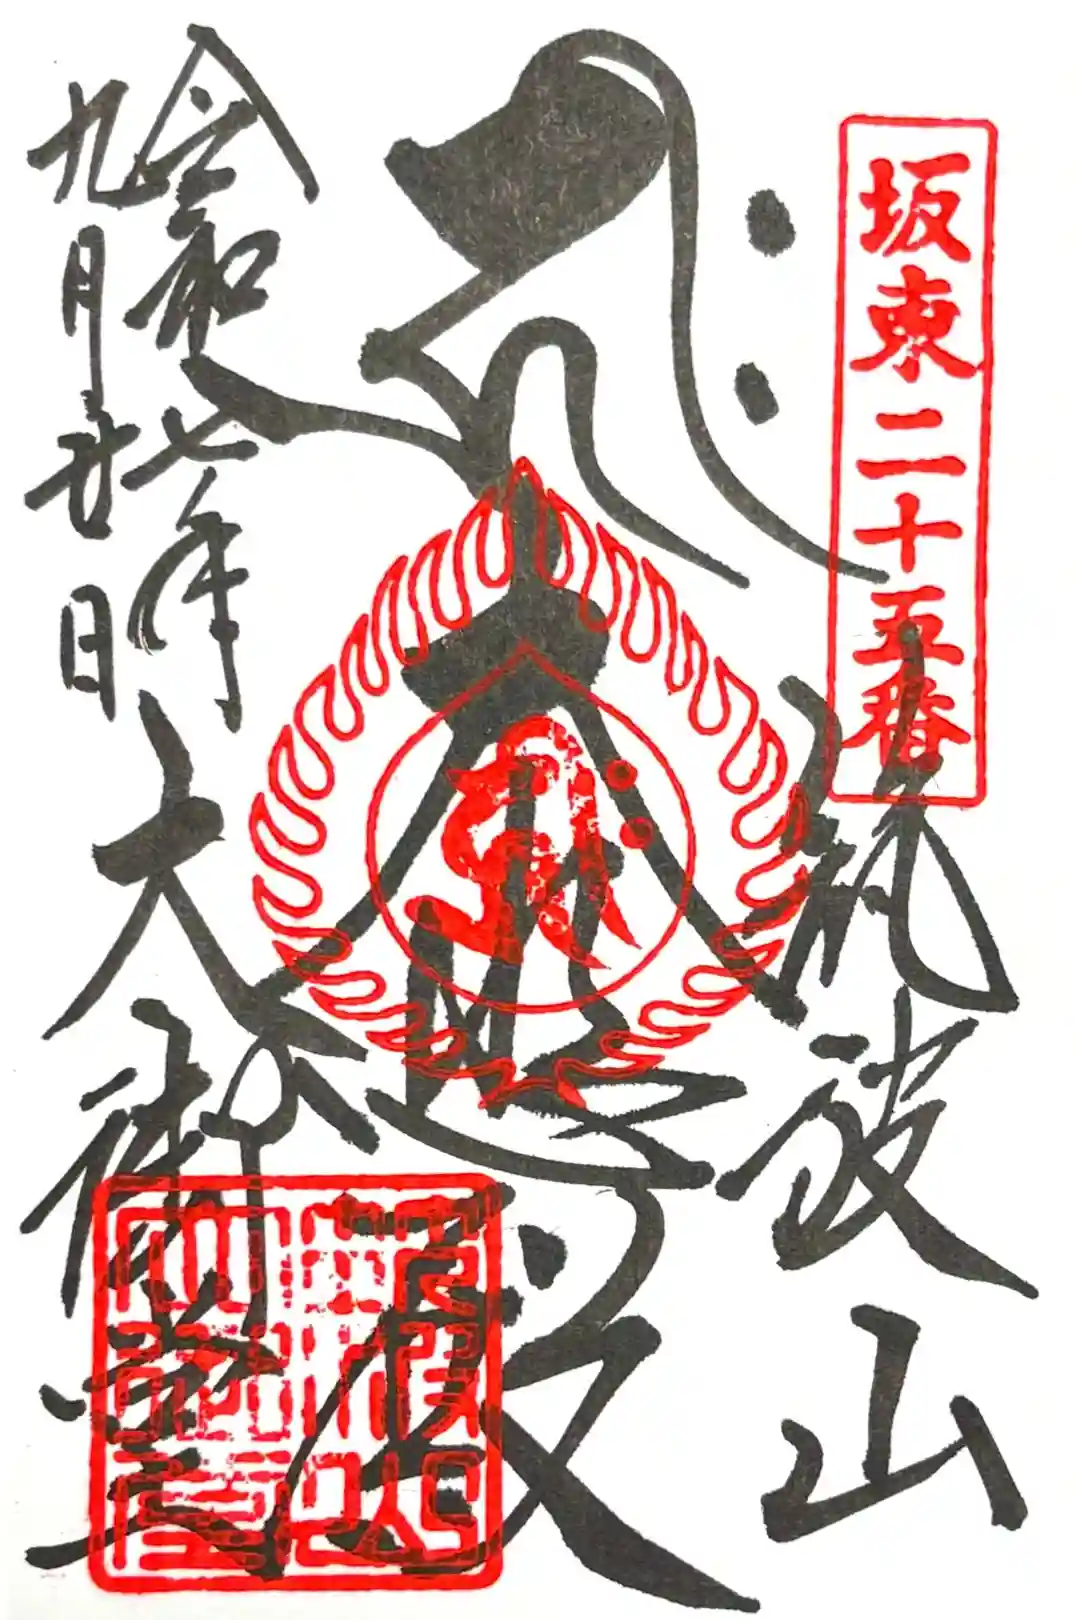 坂東二十五番
筑波山
大悲殿
大御堂
令和七年
九月廿日